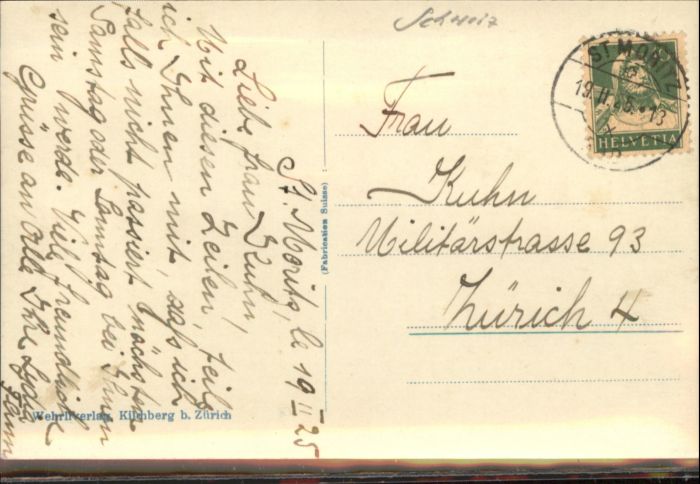 Schweiz
ST. MORITZ
19.II.25.-13
HELVETIA
St. Moritz, le 19 II 25
Liebe Frau Kuhn,
Mit diesen Zeilen, teile
ich Ihnen mit, daß ich
falls nicht passiert, nächsten
Samstag oder Sonntag bei Ihnen
sein werde. Viele freundliche
Grüsse an Alle Ihre Lydia
Frau
Kuhn
Militärstrasse 93
Zürich 4
(Fabrication Suisse)
Wehrliverlag, Kilchberg b. Zürich